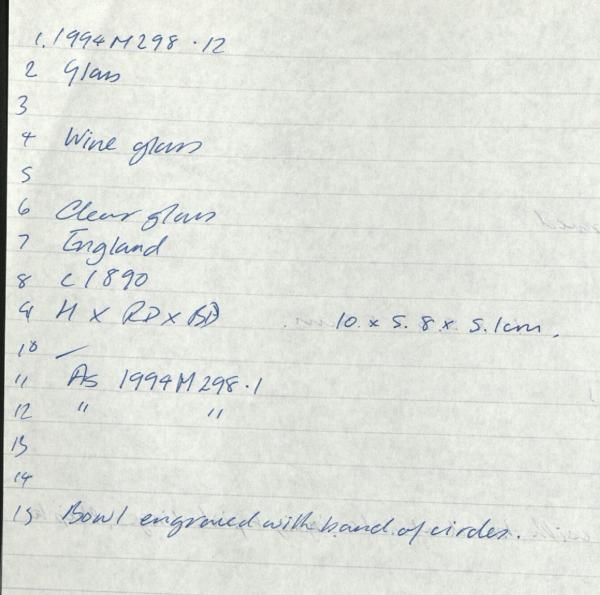 1. 1994M298.12
2 Glass
3
4 Wine glass
5
6 Clear glass
7 England
8 c1890
9 H x RD x BD 10. x 5.8 x 5.1cm.
10 —
11 As 1994M298.1
12 " "
13
14
15 Bowl engraved with band of circles.